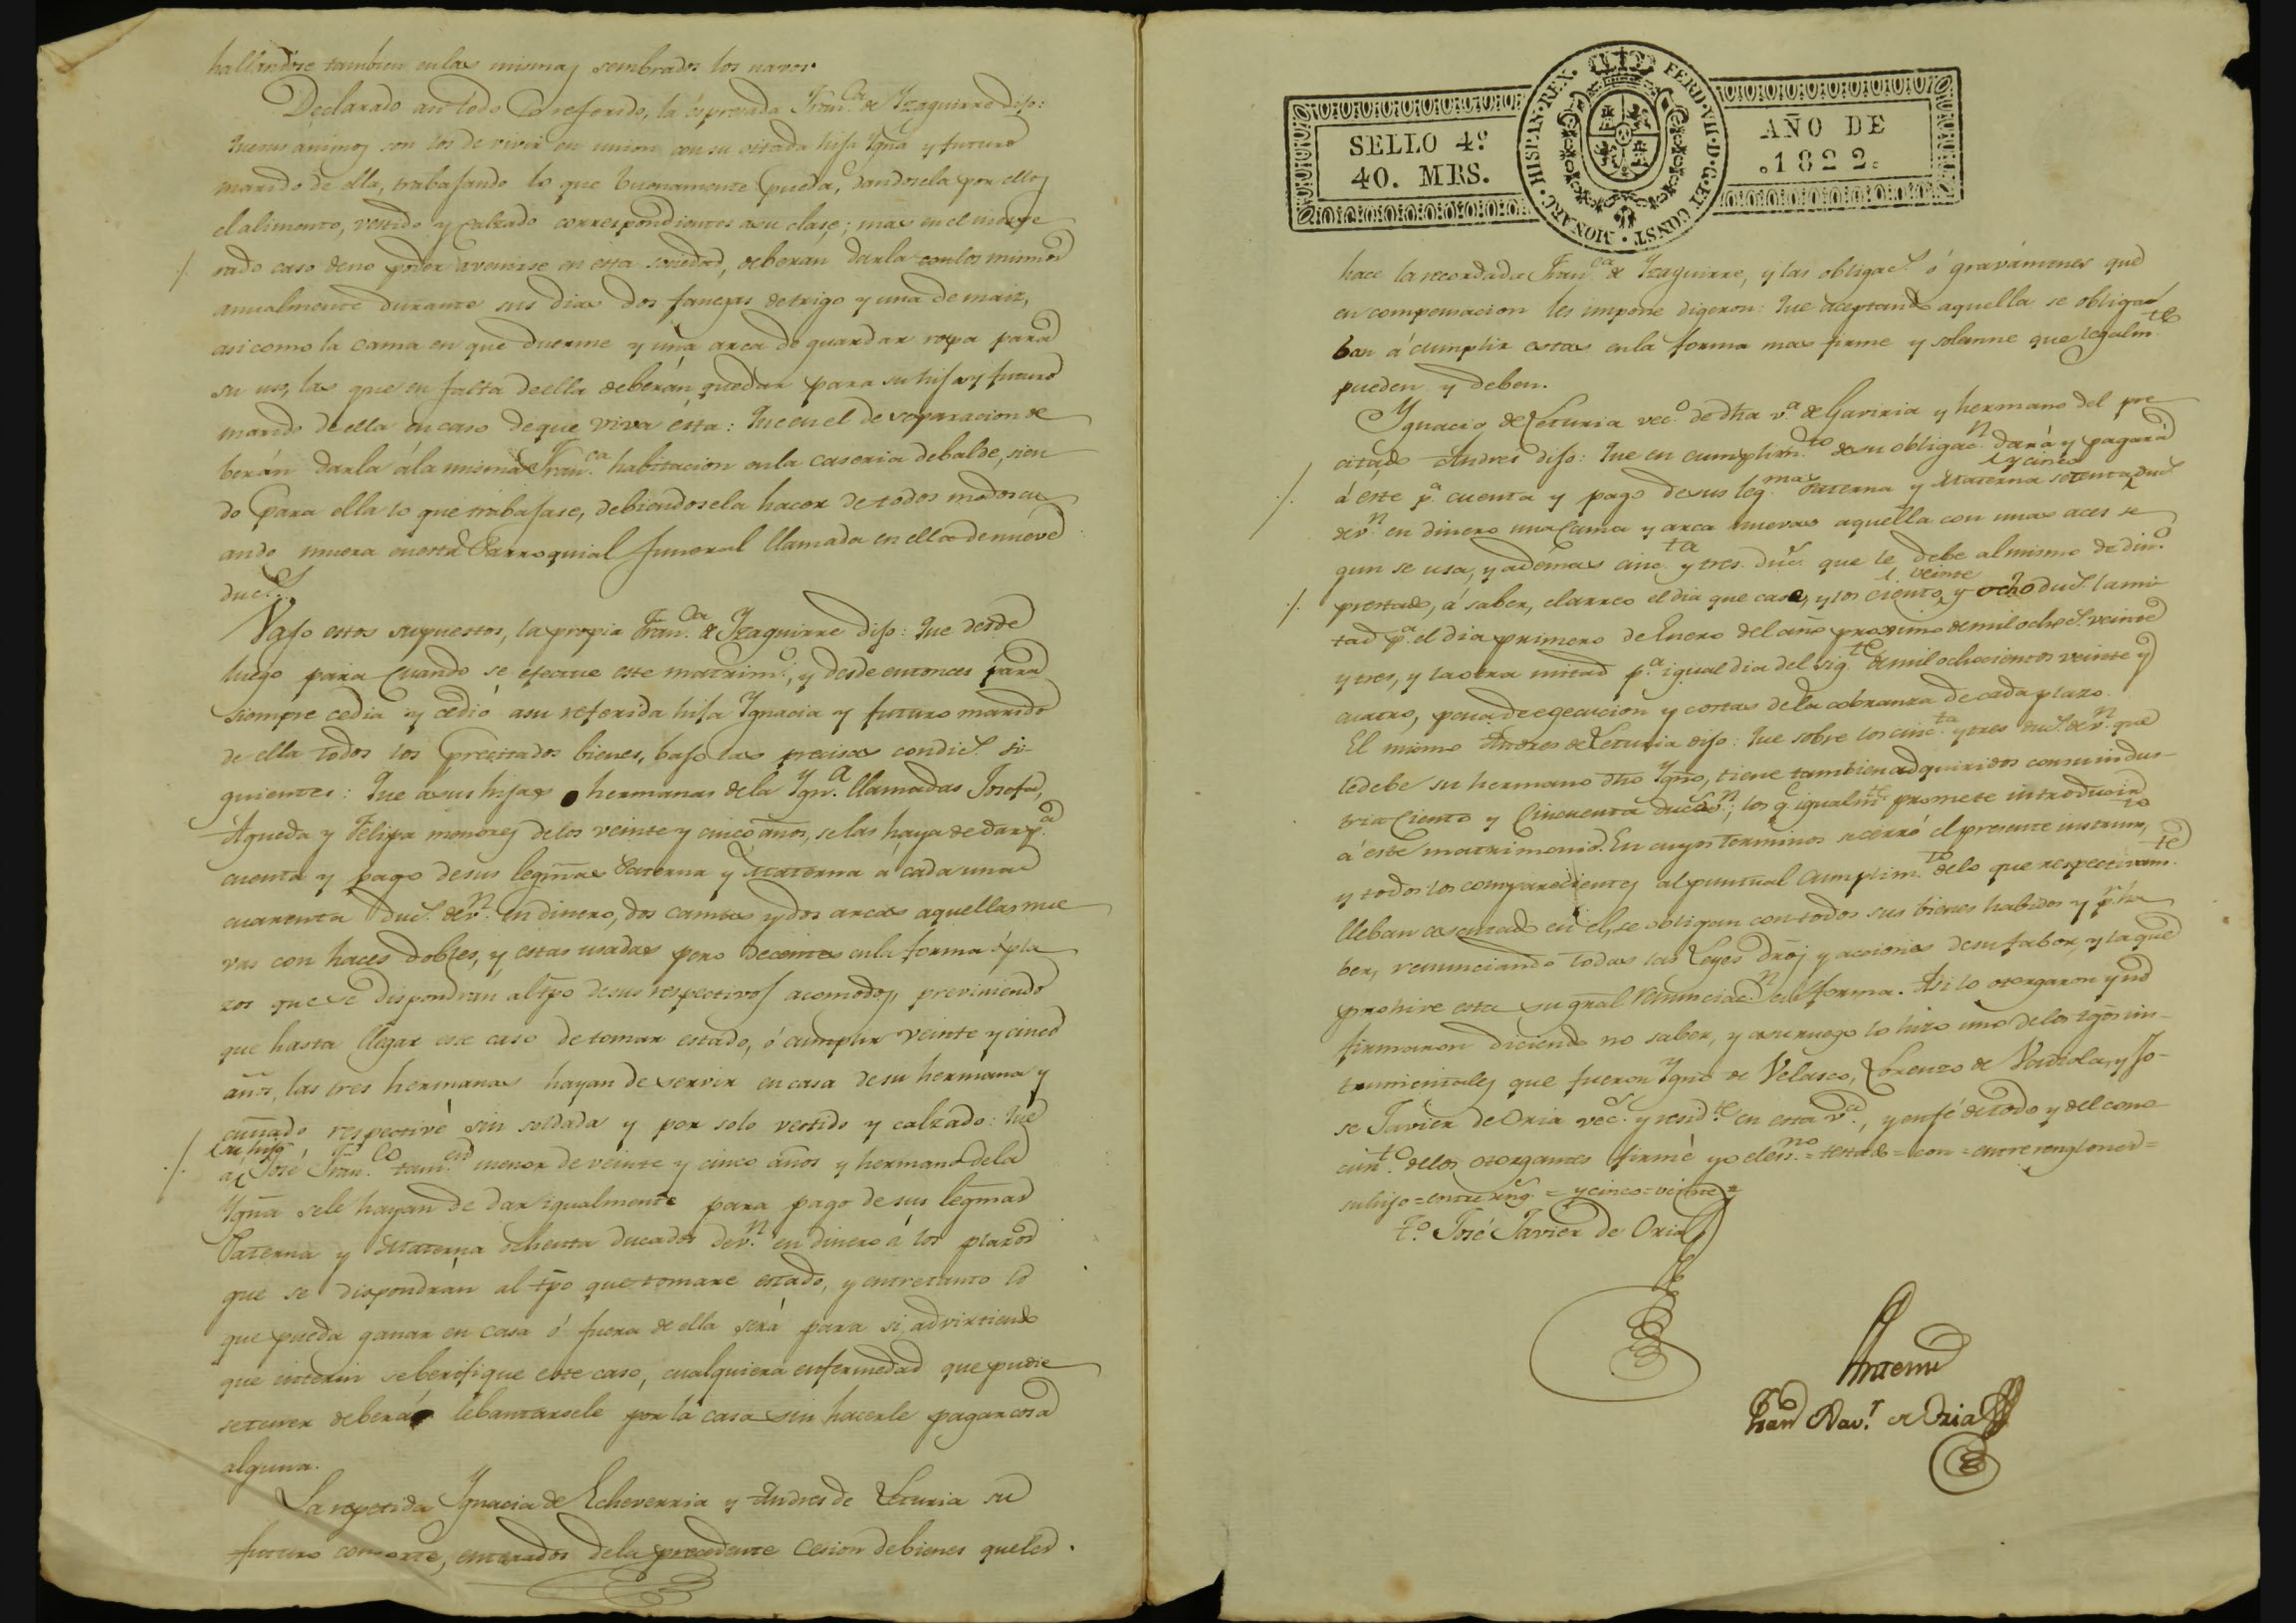 hallandose tambien en las mismas sembrados los navos.
Declarado asi todo lo referido, la espresada Fran.ca de Yzaguirre dijo:
Que sus animos son los de vivir en union con su citada hija Ygna y futuro
marido de ella, trabajando lo que buenamente pueda, dandosela por ellos
el alimento, vestido y calzado correspondientes a su clase; mas en el inespe
rado caso de no poder avenirse en esta sociedad, deberan darla con los mismos
anualmente durante sus dias dos fanegas de trigo y una de maiz,
asi como la cama en que duerme y una arca de guardar ropa para
su uso, las que en falta de ella deberán quedar para su hija y futuro
marido de ella en caso de que viva ésta: Que en el de separacion de
berán darla á la misma Fran.ca habitacion en la caseria de balde, sien
do para ella lo que trabajase, debiendosela hacer de todos modos cu
ando muera en esta Parroquial funeral llamada en ella de nueve
duc.s
Vajo estos supuestos, la propia Fran.ca de Yzaguirre dijo: Que desde
luego para cuando se efectue este matrim.o, y desde entonces para
siempre cedia y cedió a su referida hija Ygnacia y futuro marido
de ella todos los precitados bienes, bajo las precisas condic.s si-
guientes: Que a sus hijas hermanas de la Ygn.a llamadas Josefa,
Agueda y Felipa menores de los veinte y cinco años, se las haya de dar p.a
cuenta y pago de sus legmas Paterna y Materna á cada una
cuarenta duc.s de v.n en dinero, dos camas y dos arcas aquellas nue
vas con haces dobles, y estas usadas pero decentes en la forma é pla
zos que se dispondran al tpo de sus respectivos acomodos, previniendo
que hasta llegar ese caso de tomar estado, ó cumplir veinte y cinco
años, las tres hermanas hayan de servir en casa de su hermana y
cuñado respectivé sin soldada y por solo vestido y calzado: Que
su hijo
a José Fran.co tam.en menor de veinte y cinco años y hermano de la
Ygna se le hayan de dar igualmente para pago de sus legmas
Paterna y Materna ochenta ducados de v.n en dinero á los plazos
que se dispondrán al tpo que tomare estado, y entretanto lo
que pueda ganar en casa ó fuera de ella será para si, advirtiendo
que interin se berifique este caso, cualquiera enfermedad que pudie
se tener deberá lebantarsele por la casa sin hacerle pagar cosa
alguna.
La repetida Ygnacia de Echeverria y Andres de Leturia su
futuro consorte, enterados de la precedente cesion de bienes que les
SELLO 4.º
40. MRS.
FERD. VII. D. G. ET CONST. MONARC. HISPAN. REX.
AÑO DE
.1822.
hace la recordada Fran.ca de Yzaguirre, y las obligac.s ó gravámenes que
en compensacion les impone digeron: Que aceptando aquella se obliga
ban á cumplir estas en la forma mas firme y solemne que legalm.te
pueden y deben.
Ygnacio de Leturia vec.o de dha v.a de Gaviria y hermano del pre
citado Andres dijo: Que en cumplim.to de su obligac.n dará y pagará
y cinco
á éste p.a cuenta y pago de sus leg.mas Paterna y Materna setenta duc.s
de v.n en dinero una cama y arca nuevas aquella con unas aces se
gun se usa, y ademas cinc.ta y tres duc.s que le debe al mismo de din.o
veinte
prestado, á saber, el arreo el dia que case, y los ciento y ocho duc.s la mi
tad p.a el dia primero de Enero del año proximo de mil ochoc.s veinte
y tres, y la otra mitad p.a igual dia del sig.te de mil ochocientos veinte y
cuatro, pena de egecucion y costas de la cobranza de cada plazo.
El mismo Andres de Leturia dijo: Que sobre los cinc.ta y tres duc.s de v.n que
le debe su hermano dho Ygno, tiene tambien adquiridos con su indus-
tria Ciento y Cincuenta duc.s de v.n; los q.e igualm.te promete introducir
á este matrimonio. En cuyos terminos se cerró el presente instrum.to
y todos los comparecientes al puntual cumplim.to de lo que respectivam.te
lleban asentado en él, se obligan con todos sus bienes habidos y p.r ha
ber, renunciando todas las Leyes dros y acciones de su fabor, y la que
prohive esta su gral renunciac.n en forma. Asi lo otorgaron y no
firmaron diciendo no saber, y a su ruego lo hizo uno de los tgos ins-
trumentales que fueron Ygno de Velasco, Lorenzo de Vadiola, y Jo-
se Javier de Oria vec.s y resid.tes en esta v.a, y en fé de todo y del cono
cim.to de los otorgantes firmé yo el ess.no = testado = con = entre renglones =
su hijo = entre reng.s = y cinco = veinte =
T.o José Javier de Oria
Antemi
Fran.co Xav.r de Oria